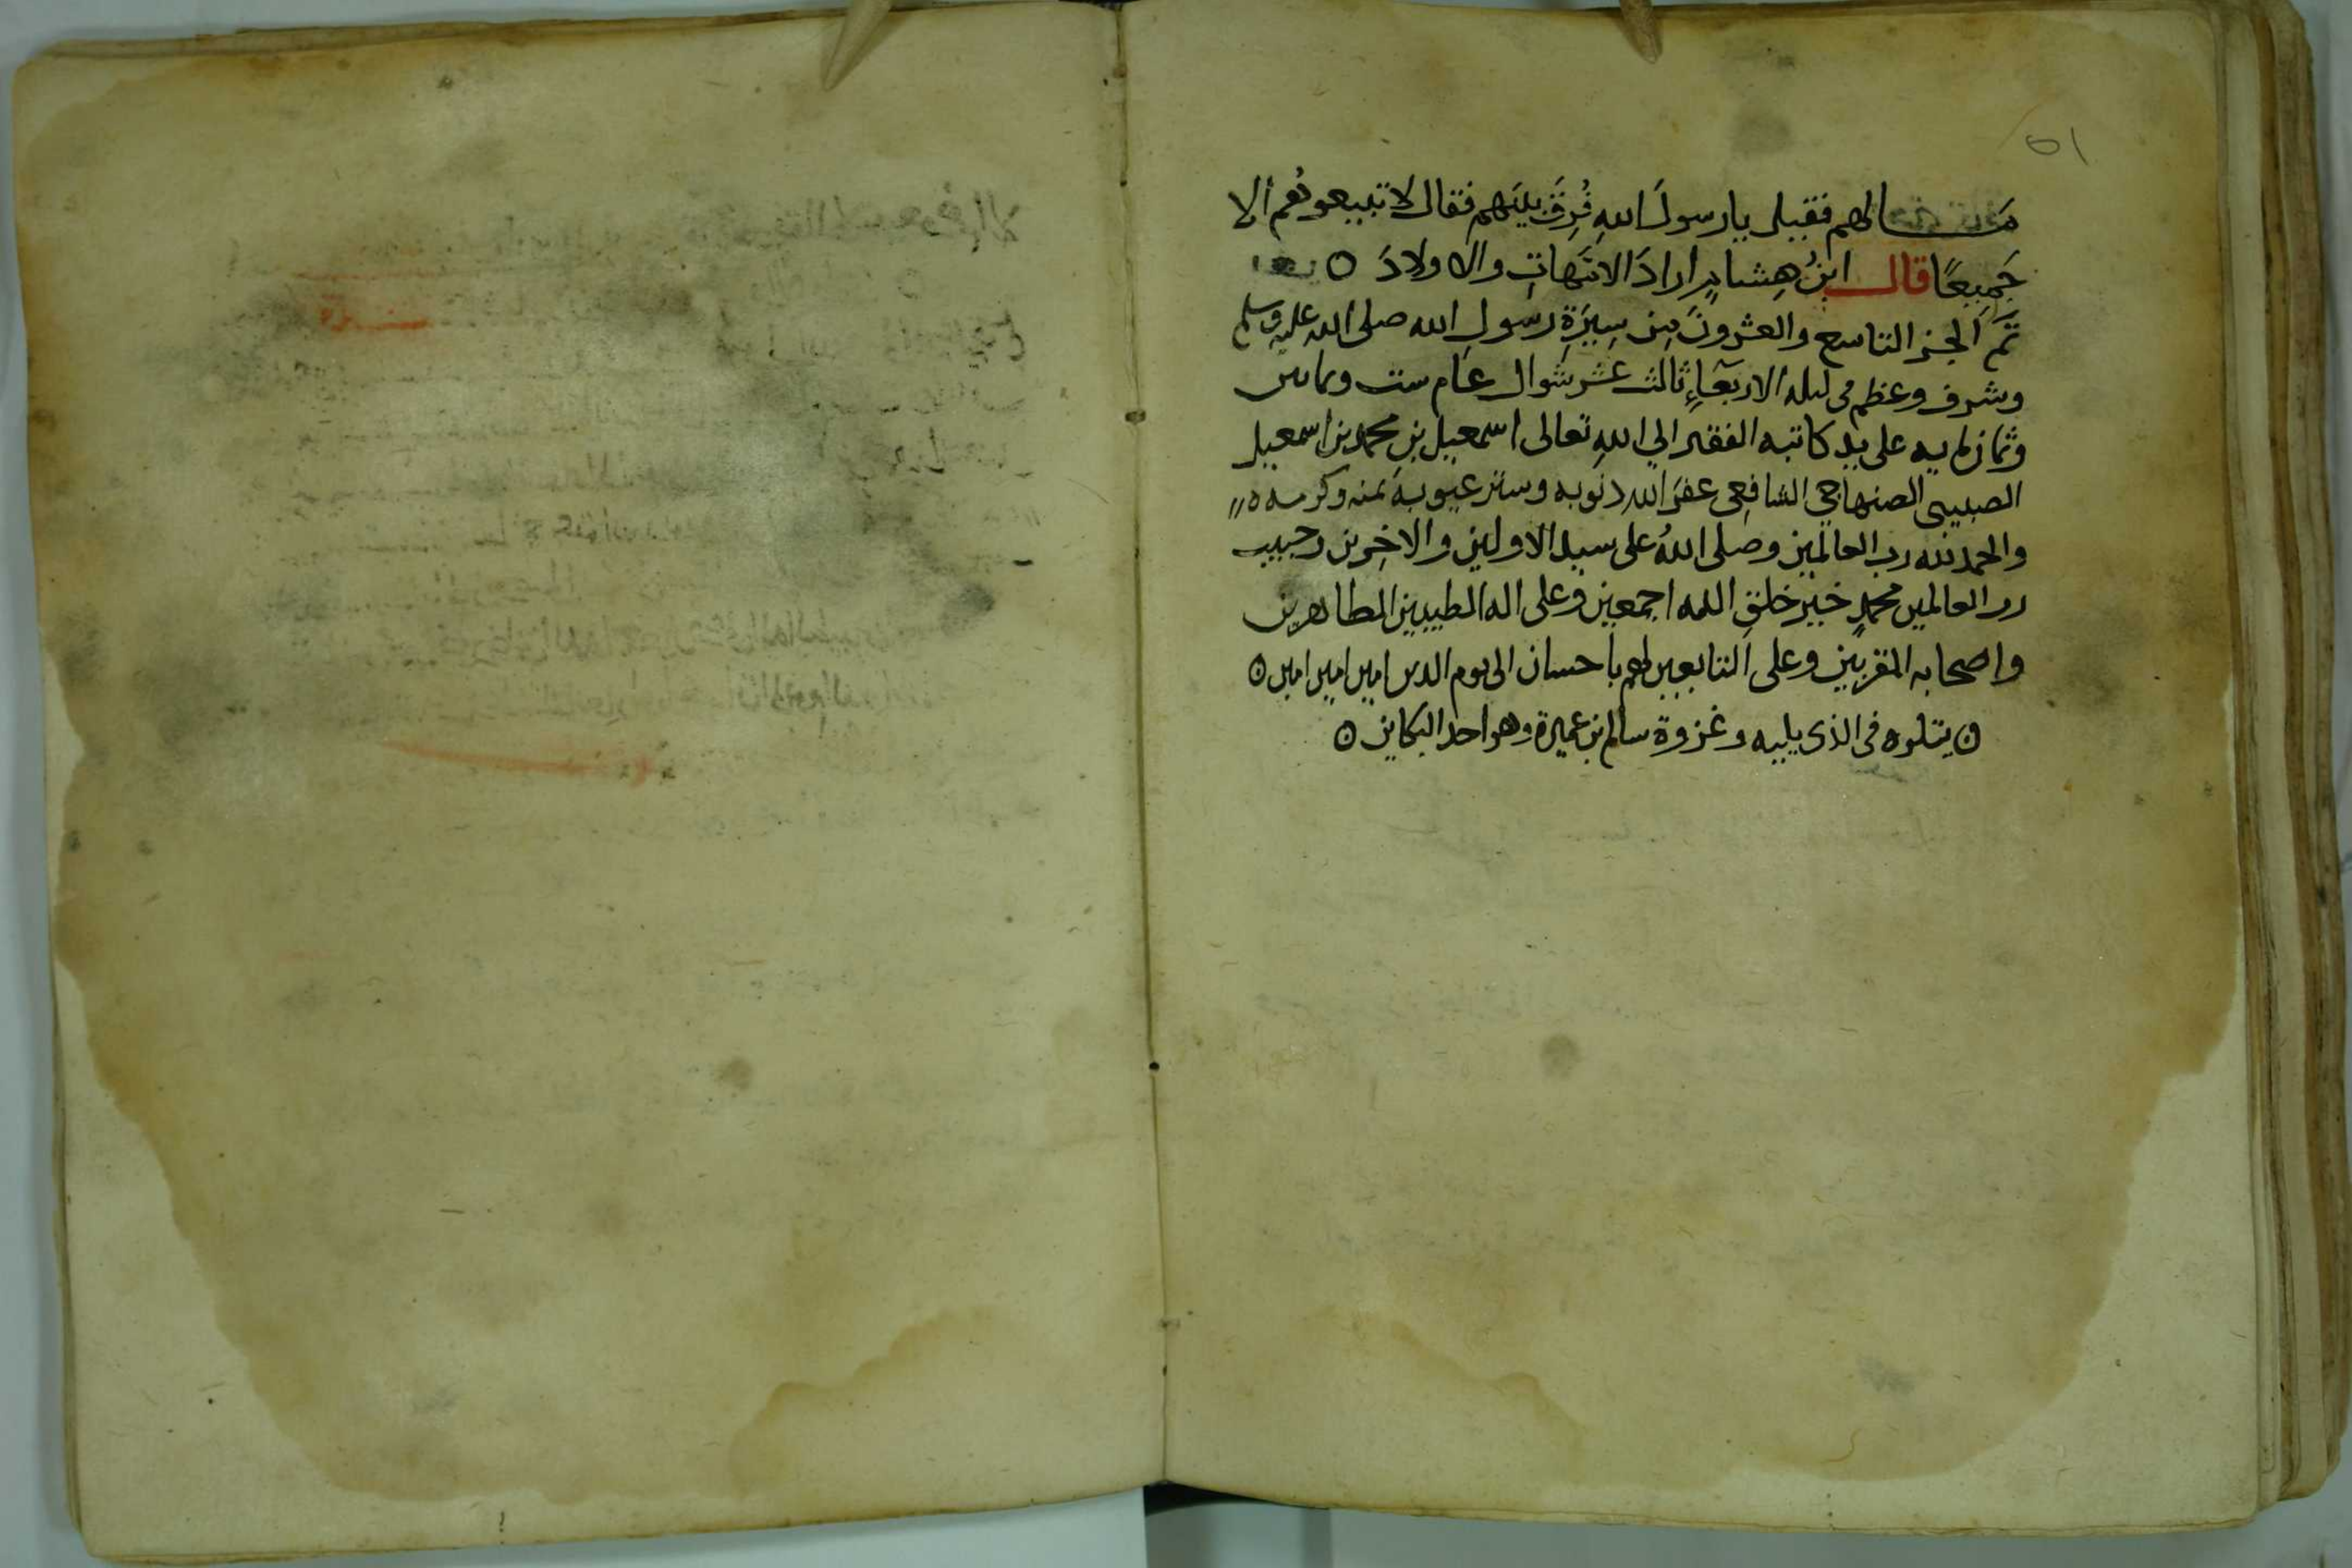 ٥١
مالهم فقيل يا رسولَ اللهِ فُرِقَ بينَهم فقال لا تبيعوهُم الا
جَمِيعًا قال ابنُ هِشامٍ ارادَ الامَّهاتِ والاولادَ ه
تَم الجز التاسع والعشرونَ مِن سِيرَةِ رسولِ الله صلى الله عليه وسلم
وشرف وعظم في ليله الاربعآءِ ثالث عشر شوال عام ست وثمانين
وثمان مايه على يد كاتبه الفقير الى اللهِ تعالى اسمعيل بنِ محمد بن اسمعيل
الصنهاجي الشافِعِي غفرَ الله ذنوبه وستر عيوبه بمنه وكرمه ه
والحمد لله رب العالمين وصلى اللهُ على سيد الاولين والاخِرين وحبيب
رب العالمين محمدٍ خير خلقِ الله اجمعين وعلى اله الطيبين الطاهرين
واصحابه المقربين وعلى التابعين لهم باحسان الى يوم الدين امين امين امين ه
ه يتلوه في الذي يليه وغزوة سالم بن عميرة وهو احد البكاين ه